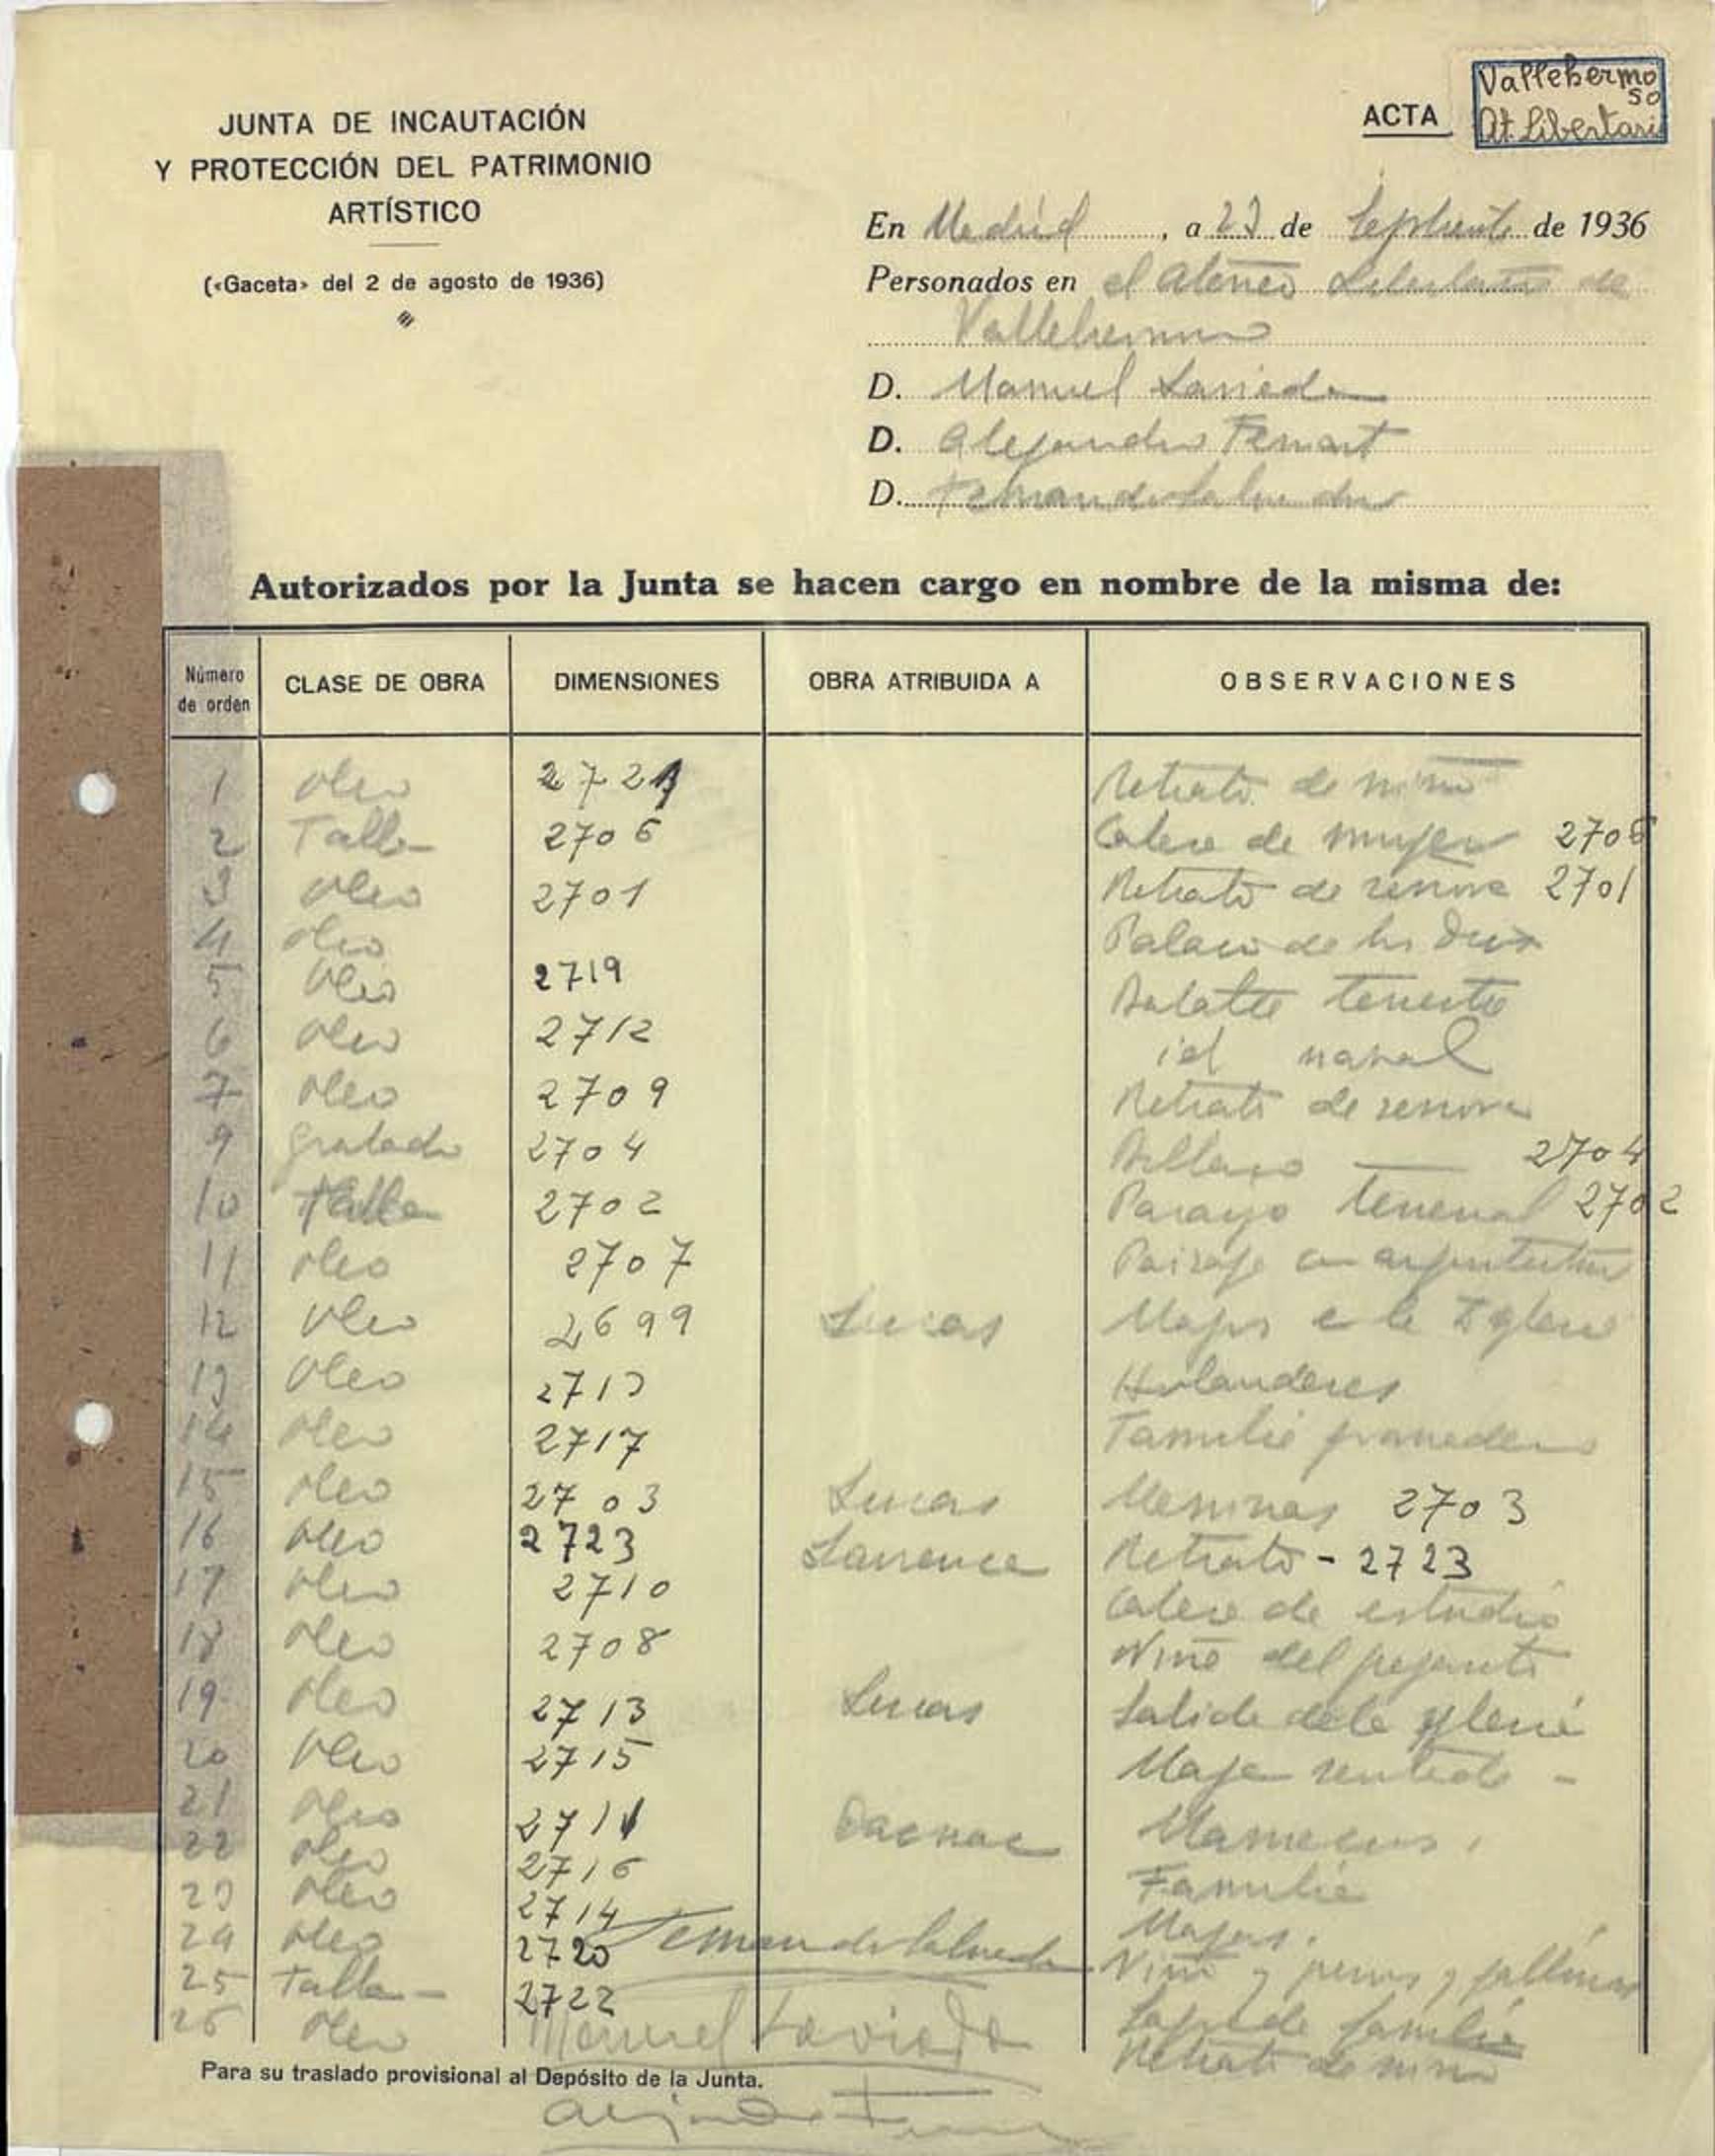 JUNTA DE INCAUTACIÓN
Y PROTECCIÓN DEL PATRIMONIO
ARTÍSTICO
(«Gaceta» del 2 de agosto de 1936)
ACTA
Vallehermo
so
At. Libertari
En Madrid, a 23 de Septiembre de 1936
Personados en el Ateneo Libertario de
Vallehermoso
D. Manuel Lavieda
D. Alejandro Ferrant
D. Fernando
Autorizados por la Junta se hacen cargo en nombre de la misma de:
Número de orden CLASE DE OBRA DIMENSIONES OBRA ATRIBUIDA A OBSERVACIONES
1 oleo 2721 Retrato de niño
2 Talla 2706 Cabeza de mujer 2706
3 oleo 2701 Retrato de señora 2701
4 oleo Palacio de
5 oleo 2719 Batalla terrestre
6 oleo 2712 id naval
7 oleo 2709 Retrato de señora
9 grabado 2704 2704
10 Talla 2702 2702
11 oleo 2707 Paisaje con arquitectura
12 oleo 2699 Lucas Majas en la Iglesia
13 oleo 2713 Holandeses
14 oleo 2717 Familia
15 oleo 2703 Lucas Meninas 2703
16 oleo 2723 Lawrence Retrato - 2723
17 oleo 2710 Cabeza de estudio
18 oleo 2708 Niño del
19 oleo 2713 Lucas Salida de la iglesia
20 oleo 2715 Maja sentada -
21 oleo 2711
22 oleo 2716 Familia
23 oleo 2714 Majas.
24 oleo 2720 Niño y perros y gallinas
25 Talla - 2722 familia
26 oleo Retrato de niño
Manuel Lavieda
Para su traslado provisional al Depósito de la Junta.